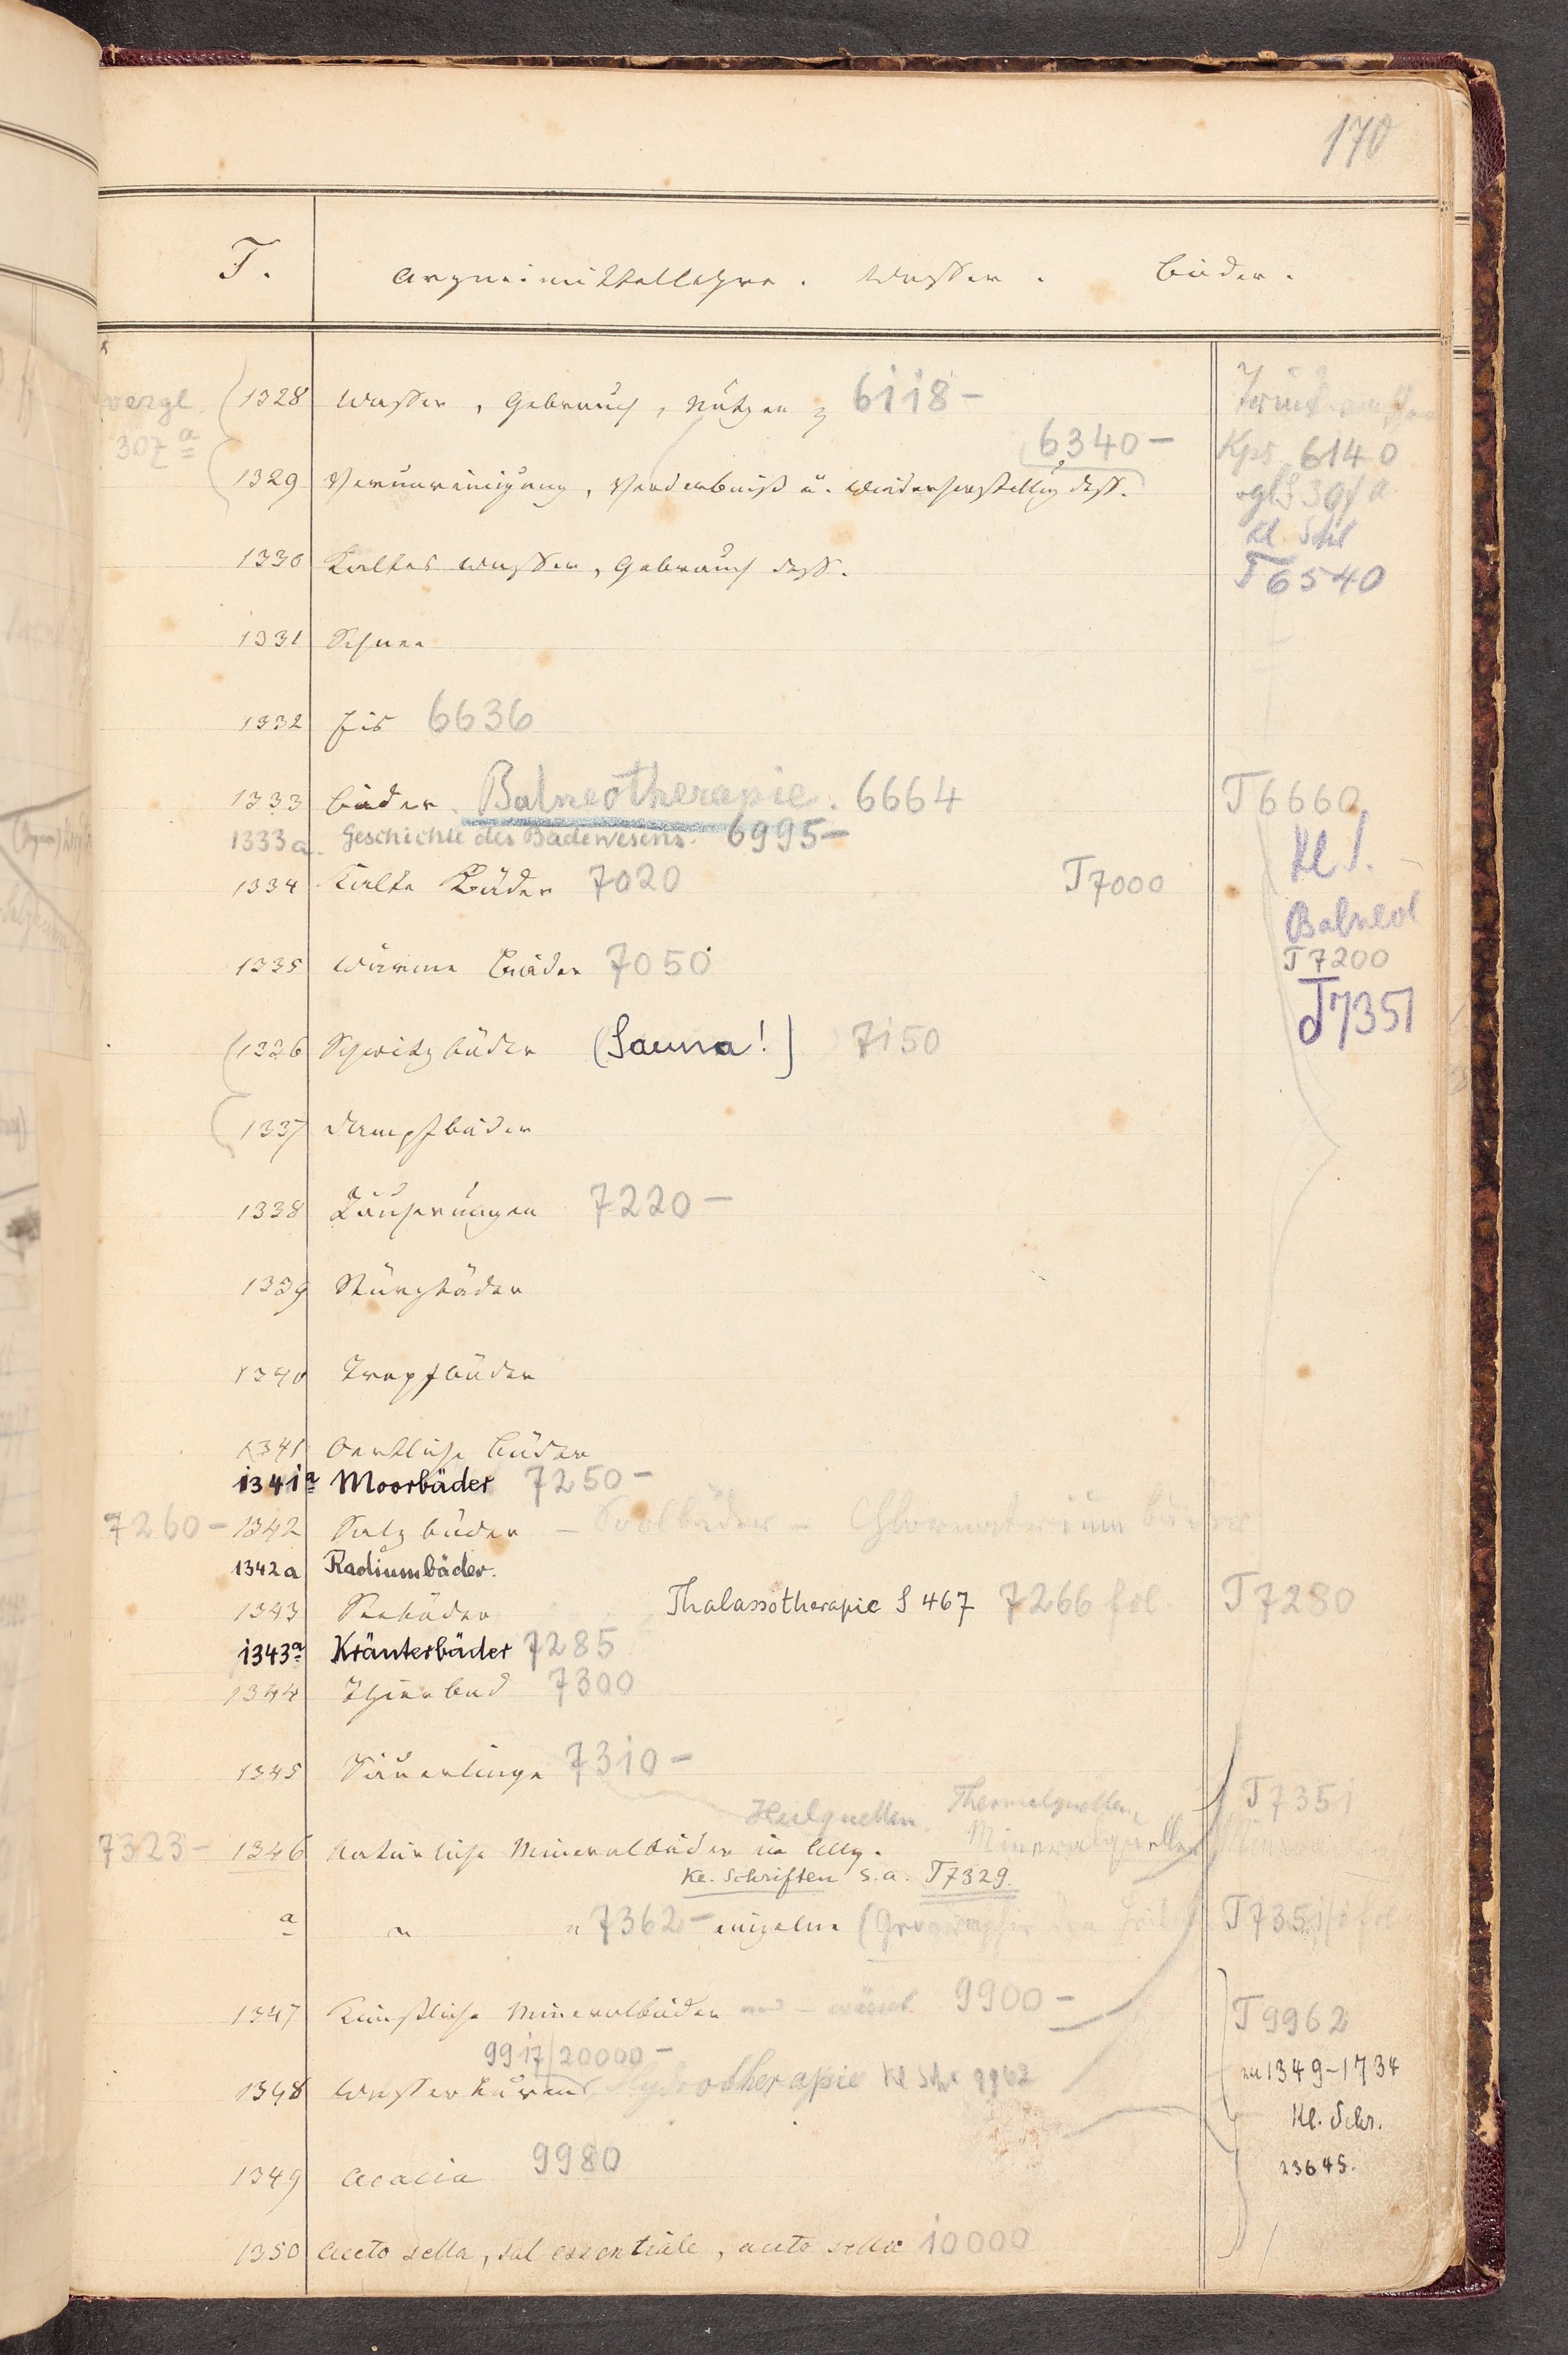 170
T. Arzneimittellehre. Wasser. Bäder.
vergl. 307a
1328 Wasser, Gebrauch, Nutzen 6118-
6340-
1329 Verunreinigung, Verderbniß u. Wiederherstellg dess.
Trinkwasser
Kps 6140
vgl S 307 a
Kl. Schr
T6540
1330 Kaltes Wasser, Gebrauch dess.
1331 Schnee
1332 Eis 6636
1333 Bäder. Balneotherapie. 6664 T6660
1333a. Geschichte des Badewesens. 6995-
Kl S.
1334 Kalte Bäder 7020 T7000
Balneol
1335 Warme Bäder 7050 T7200
T7351
1336 Schwitzbäder (Sauna!) 7150
1337 Dampfbäder
1338 Räucherungen 7220-
1339 Sturzbäder
1340 Tropfbäder
1341 Oertliche Bäder
1341a Moorbäder 7250-
7260- 1342 Salzbäder - Soolbäder - Chlornatriumbäder
1342a Radiumbäder.
1343 Seebäder Thalassotherapie S 467 7266 fol. T7280
1343a Kräuterbäder 7285
1344 Thierbad 7300
1345 Säuerlinge 7310-
Heilquellen. Thermalquellen, T7351
7323- 1346 Natürliche Mineralbäder in Allg. Mineralquellen
Kl. Schriften s.a. T7329.
a " " 7362- einzelne (Geographie der T7351/ fol
1347 Künstliche Mineralbäder und - 9900- T9962
9917/20000-
1348 Wasserkuren Hydrotherapie Kl Schr 9962
zu 1349-1734
Kl. Schr.
23645.
1349 Acacia 9980
1350 Aceto sella, sal essentiale, aceto sellae 10000